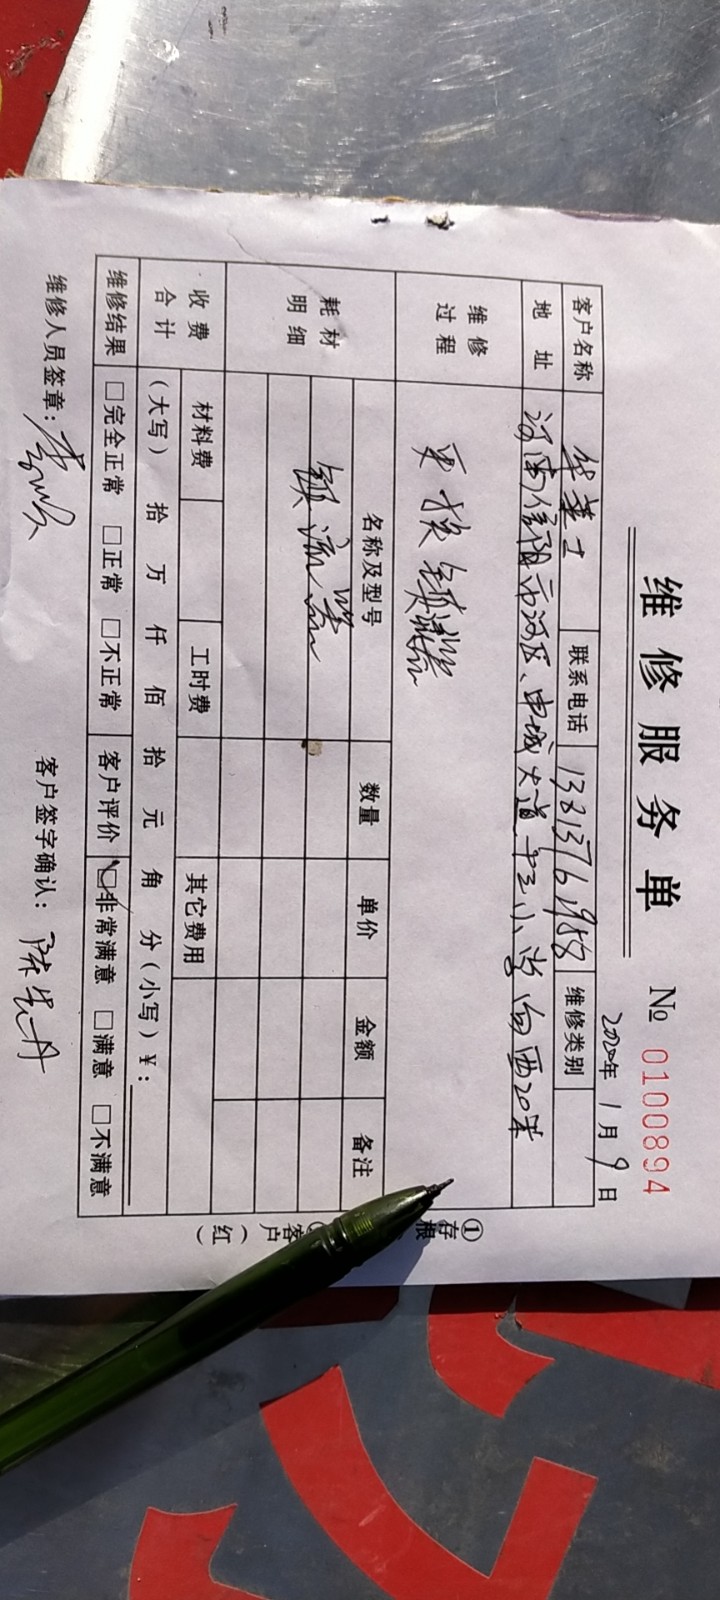 维修服务单
№ 0100894
2020年 1月 9日
客户名称 华莱士 联系电话 维修类别
地址 河南信阳市浉河区、申城大道 十三小学向西20米
维修过程 更换镇流器
耗材明细 名称及型号 数量 单价 金额 备注
镇流器
收费合计 材料费 工时费 其它费用
(大写) 拾 万 仟 佰 拾 元 角 分(小写)¥:
维修结果 □完全正常 □正常 □不正常 客户评价 ☑非常满意 □满意 □不满意
维修人员签章: 客户签字确认:
①存根 客户(红)